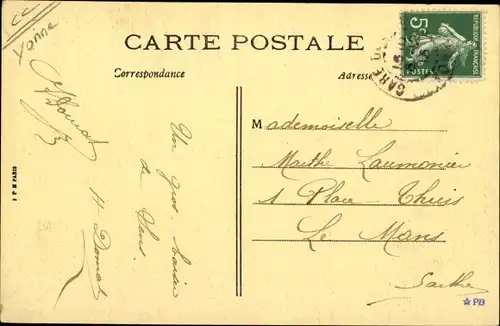 Yonne
CARTE POSTALE
Correspondance
Adresse
5c
REPUBLIQUE FRANÇAISE
POSTES
GARE
Un gros baiser
de
Mademoiselle
Marthe Laumonier
1 Place Thiers
Le Mans
Sarthe
I P M PARIS
PB